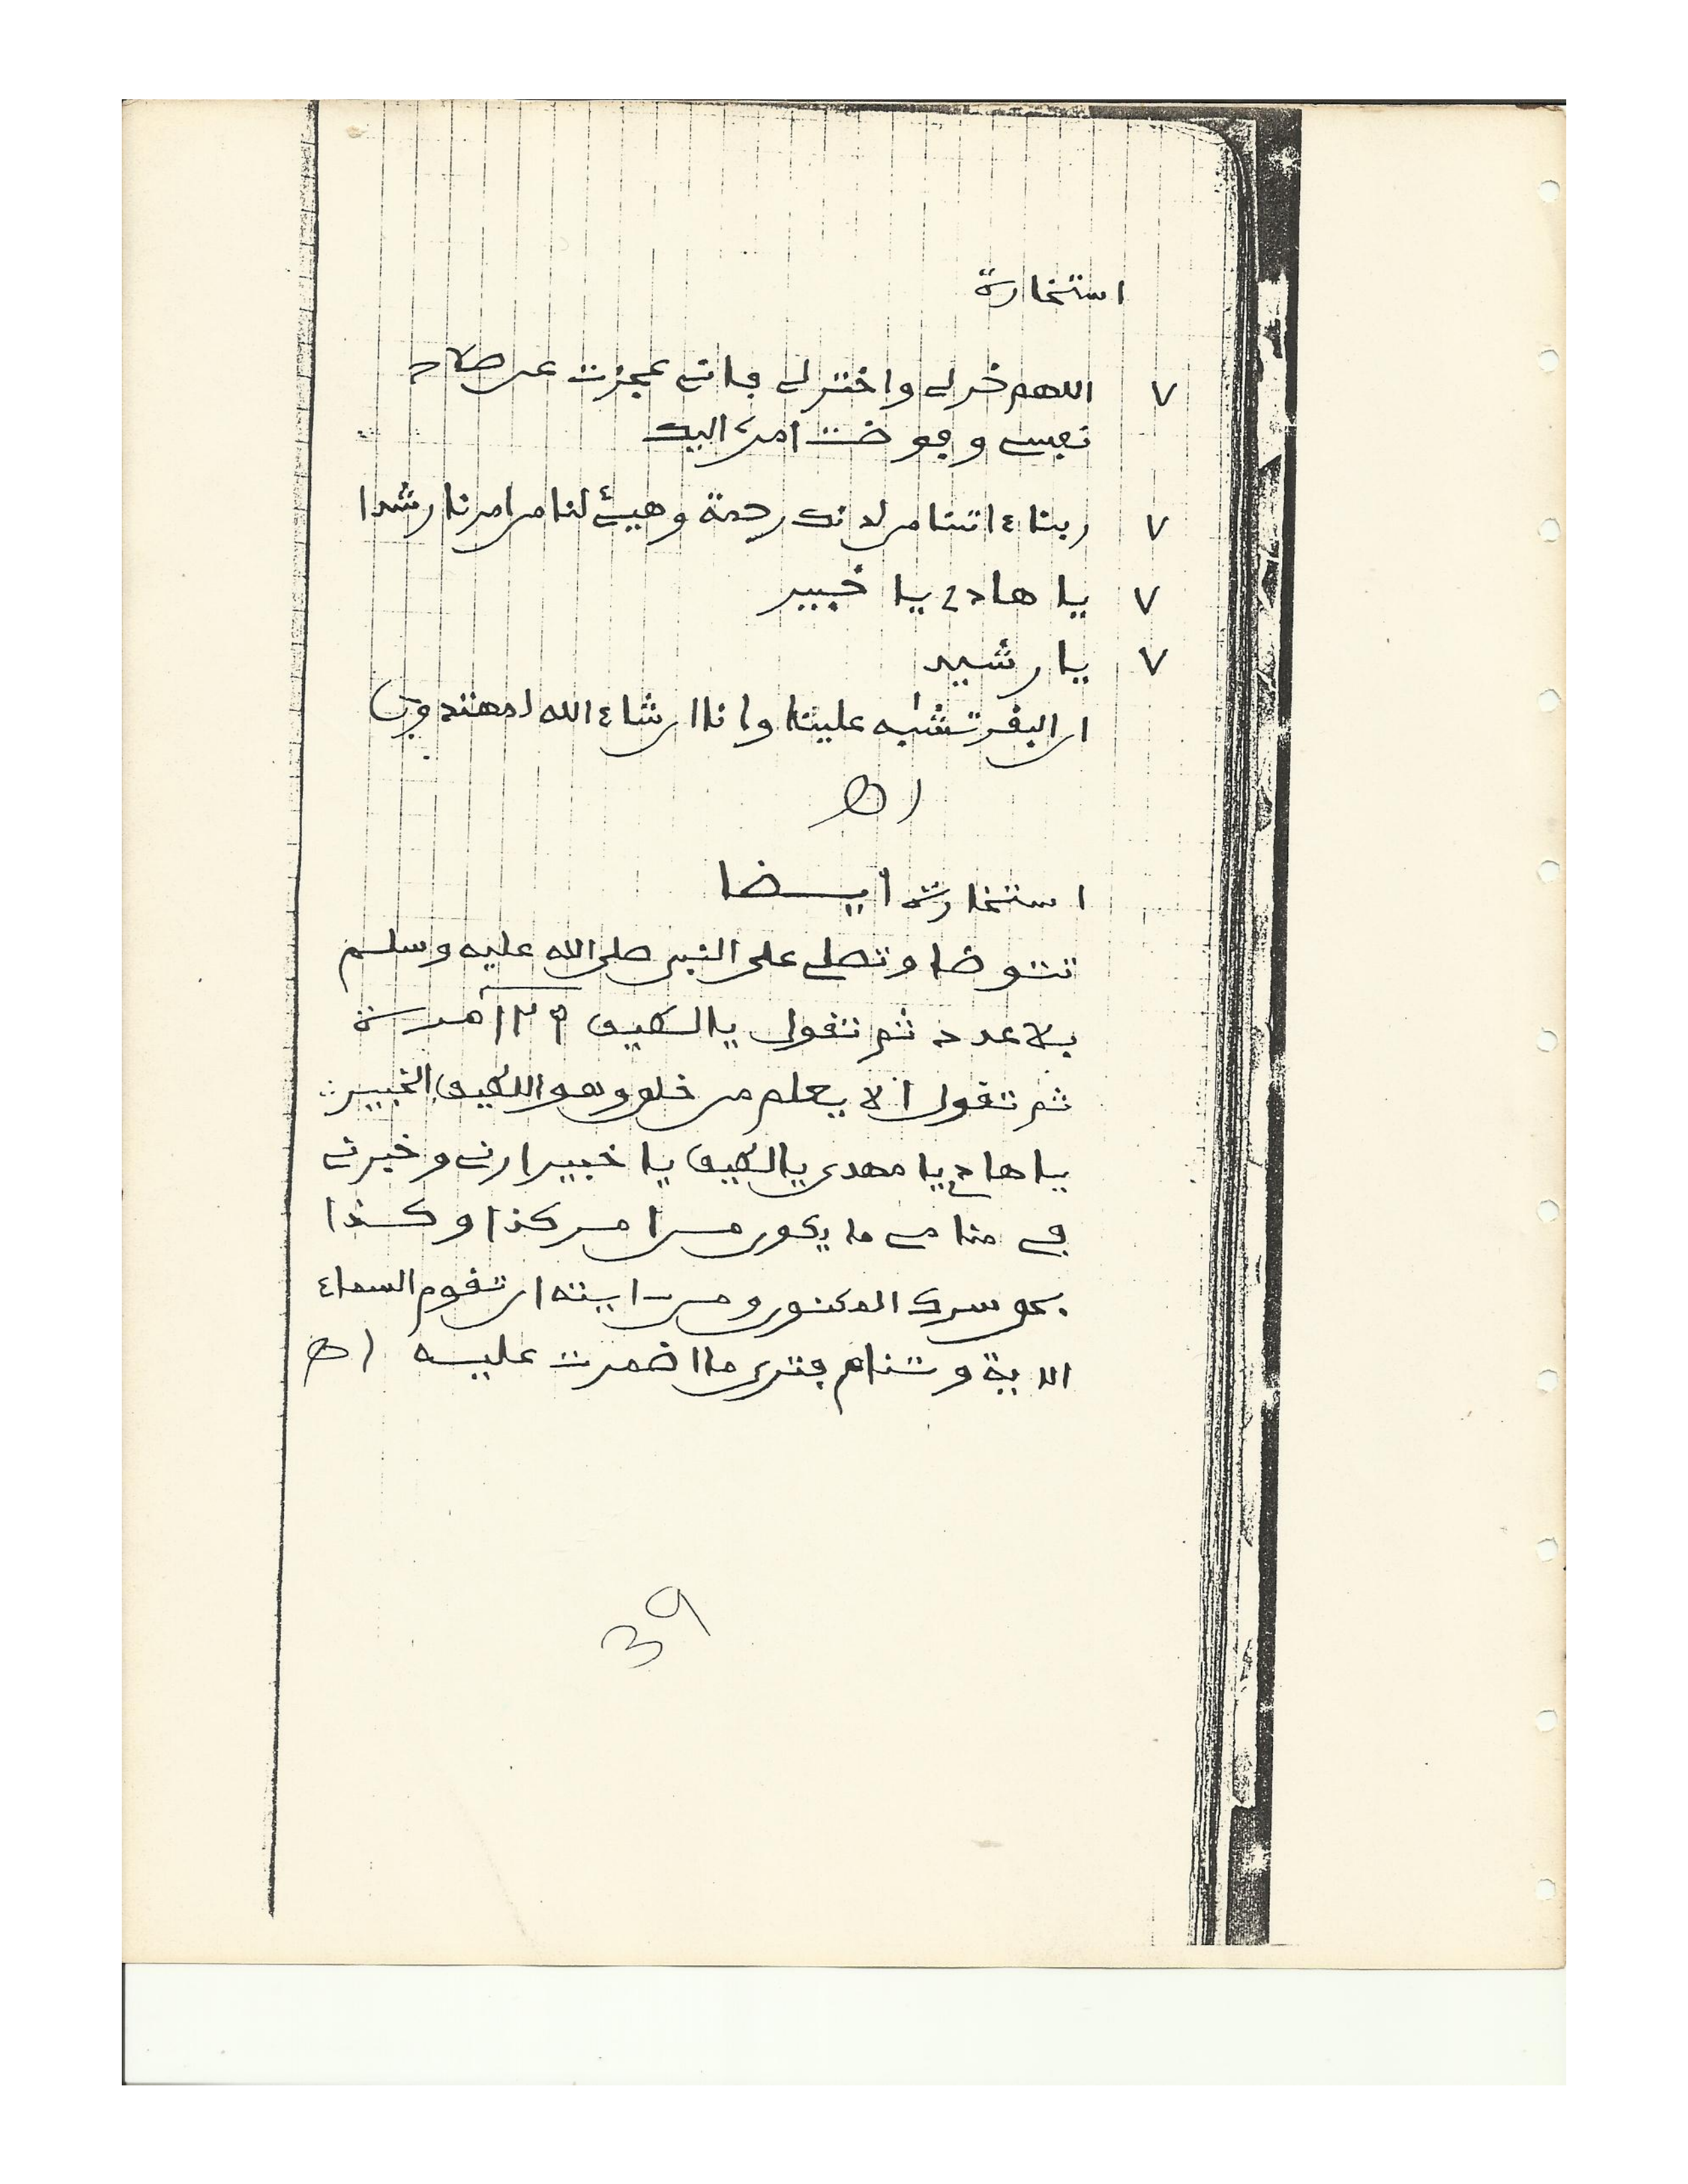 استخارة
٧ اللهم خر لي واختر لي فإني عجزت عن صلاح
نفسي وفوضت امري اليك
٧ ربنا ءاتنا من لدنك رحمة وهيئ لنا من امرنا رشدا
٧ يا هادي يا خبير
٧ يا رشيد
ان البقر تشٰبه علينا وانا ان شاء الله لمهتدون
اهـ
استخارة أيضا
تتوضا وتصلي على النبي صلى الله عليه وسلم
بلا عدد ثم تقول يا لطيف ١٢٩ مرة
ثم تقول ألا يعلم من خلق وهو اللطيف الخبير
يا هادي يا مهدي يا لطيف يا خبير ارني وخبرني
في منامي ما يكون من امر كذا وكذا
بحق سرك المكنون ومن ءايته ان تقوم السماء
الاية وتنام فترى ما اضمرت عليه اهـ
39